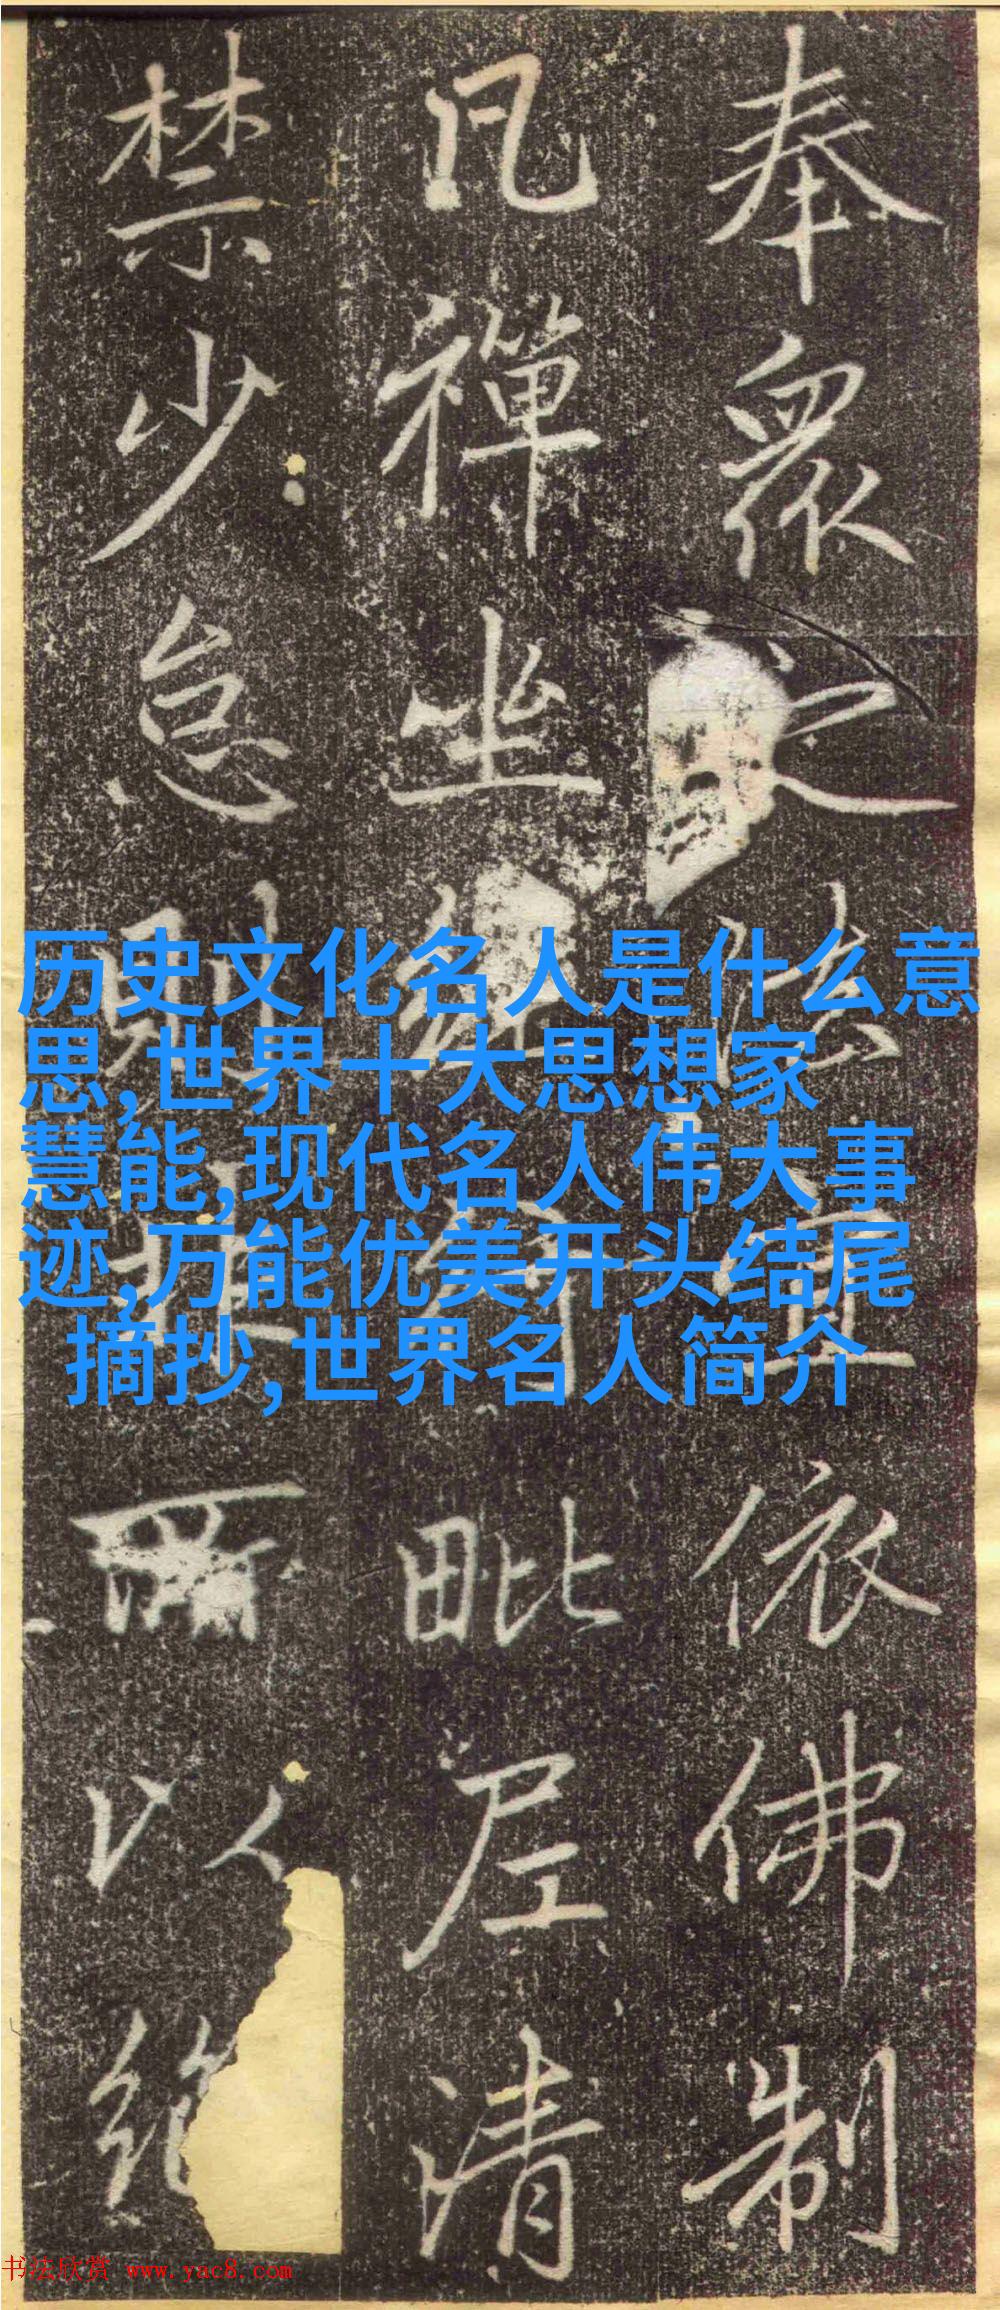 奉眾依佛制
凡禪坐毗尼清
禁少怠則以
历史文化名人是什么意
思,世界十大思想家
慧能,现代名人伟大事
迹,万能优美开头结尾
摘抄,世界名人简介
书法欣赏 www.yac8.com